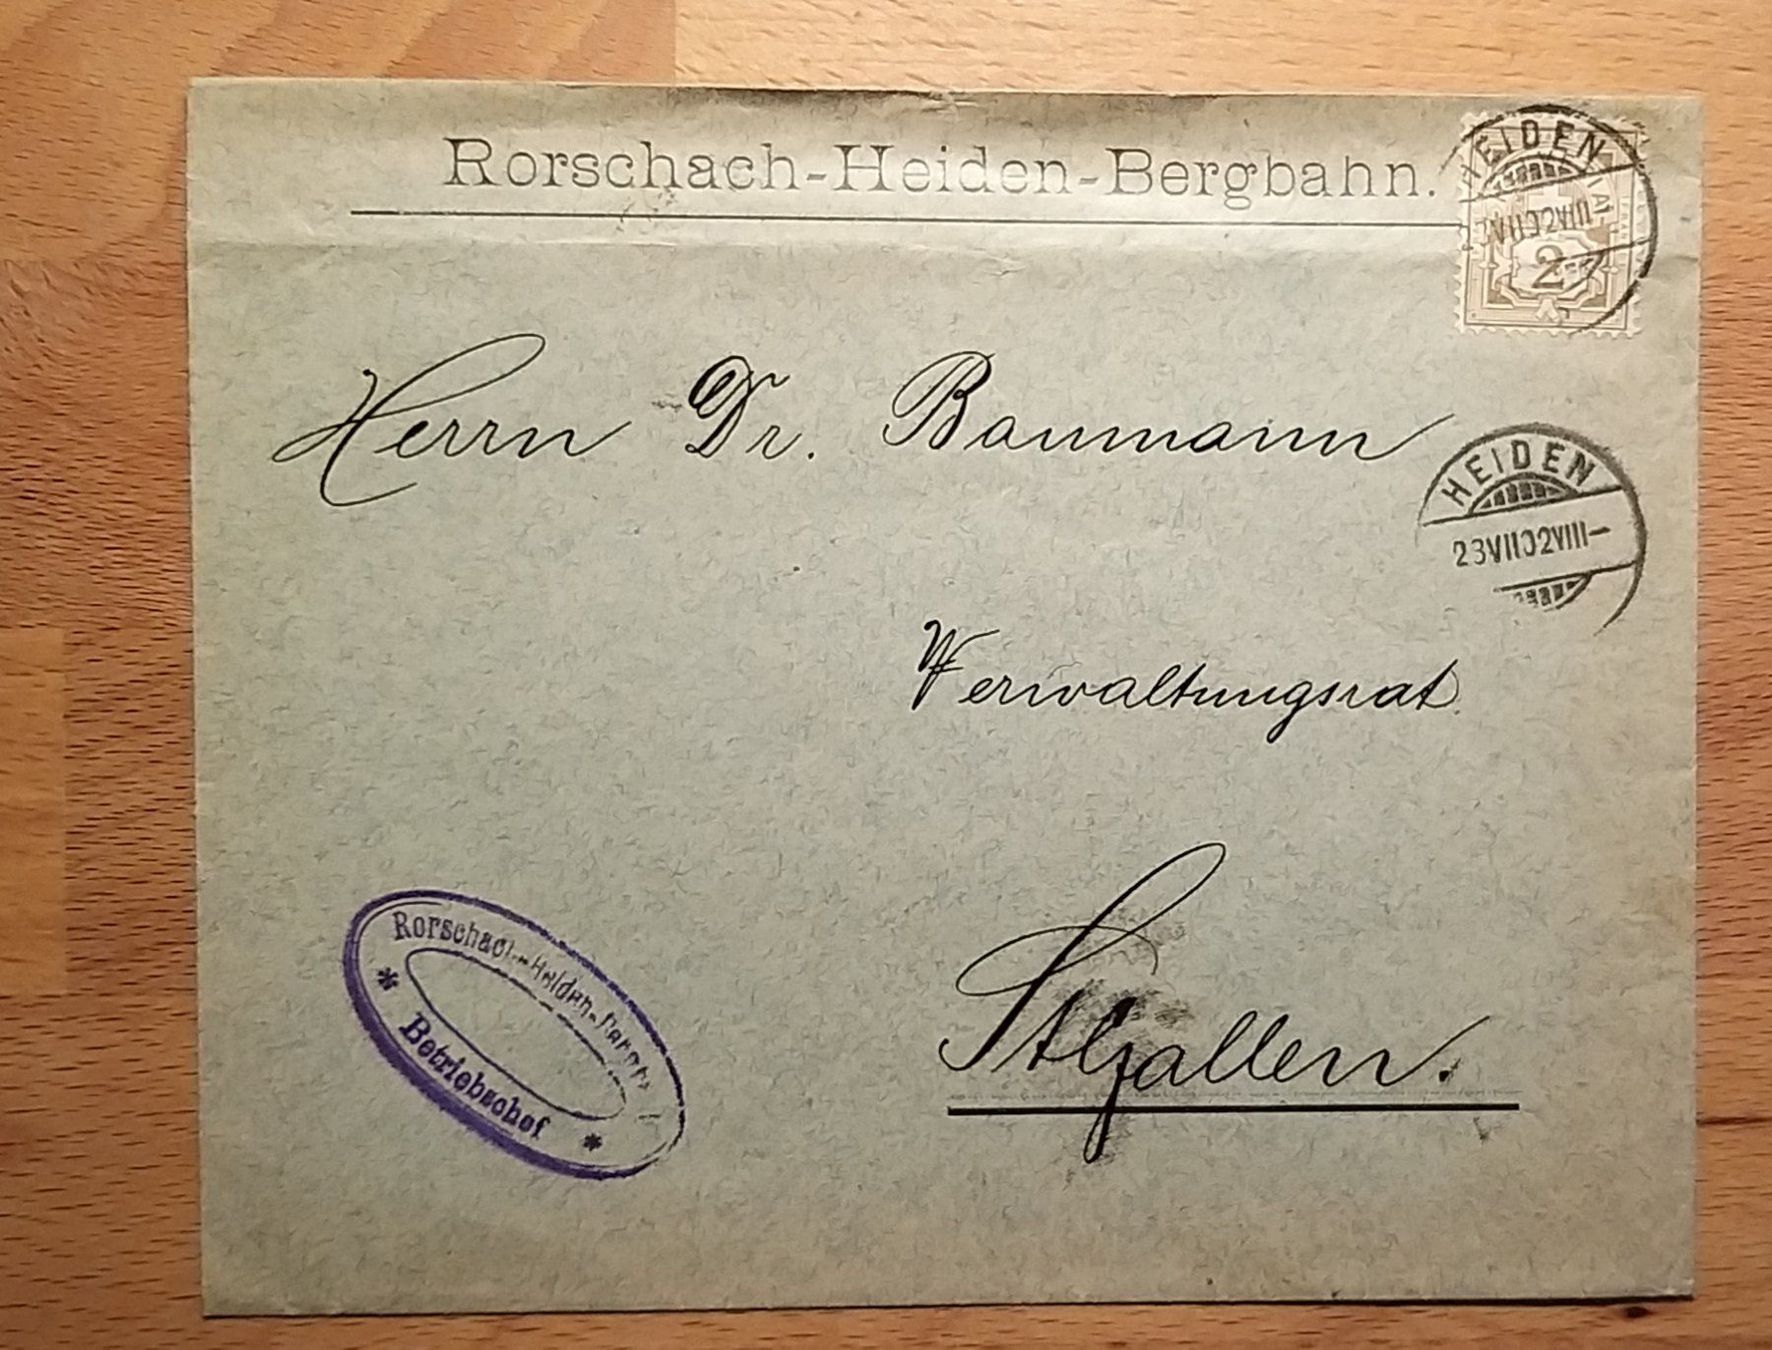 Rorschach-Heiden-Bergbahn.
HEIDEN
VII02VIII
2
Herrn Dr. Baumann
HEIDEN
23VII02VIII–
Verwaltungsrat.
St Gallen.
Rorschach-Heiden-
* Betriebschef *